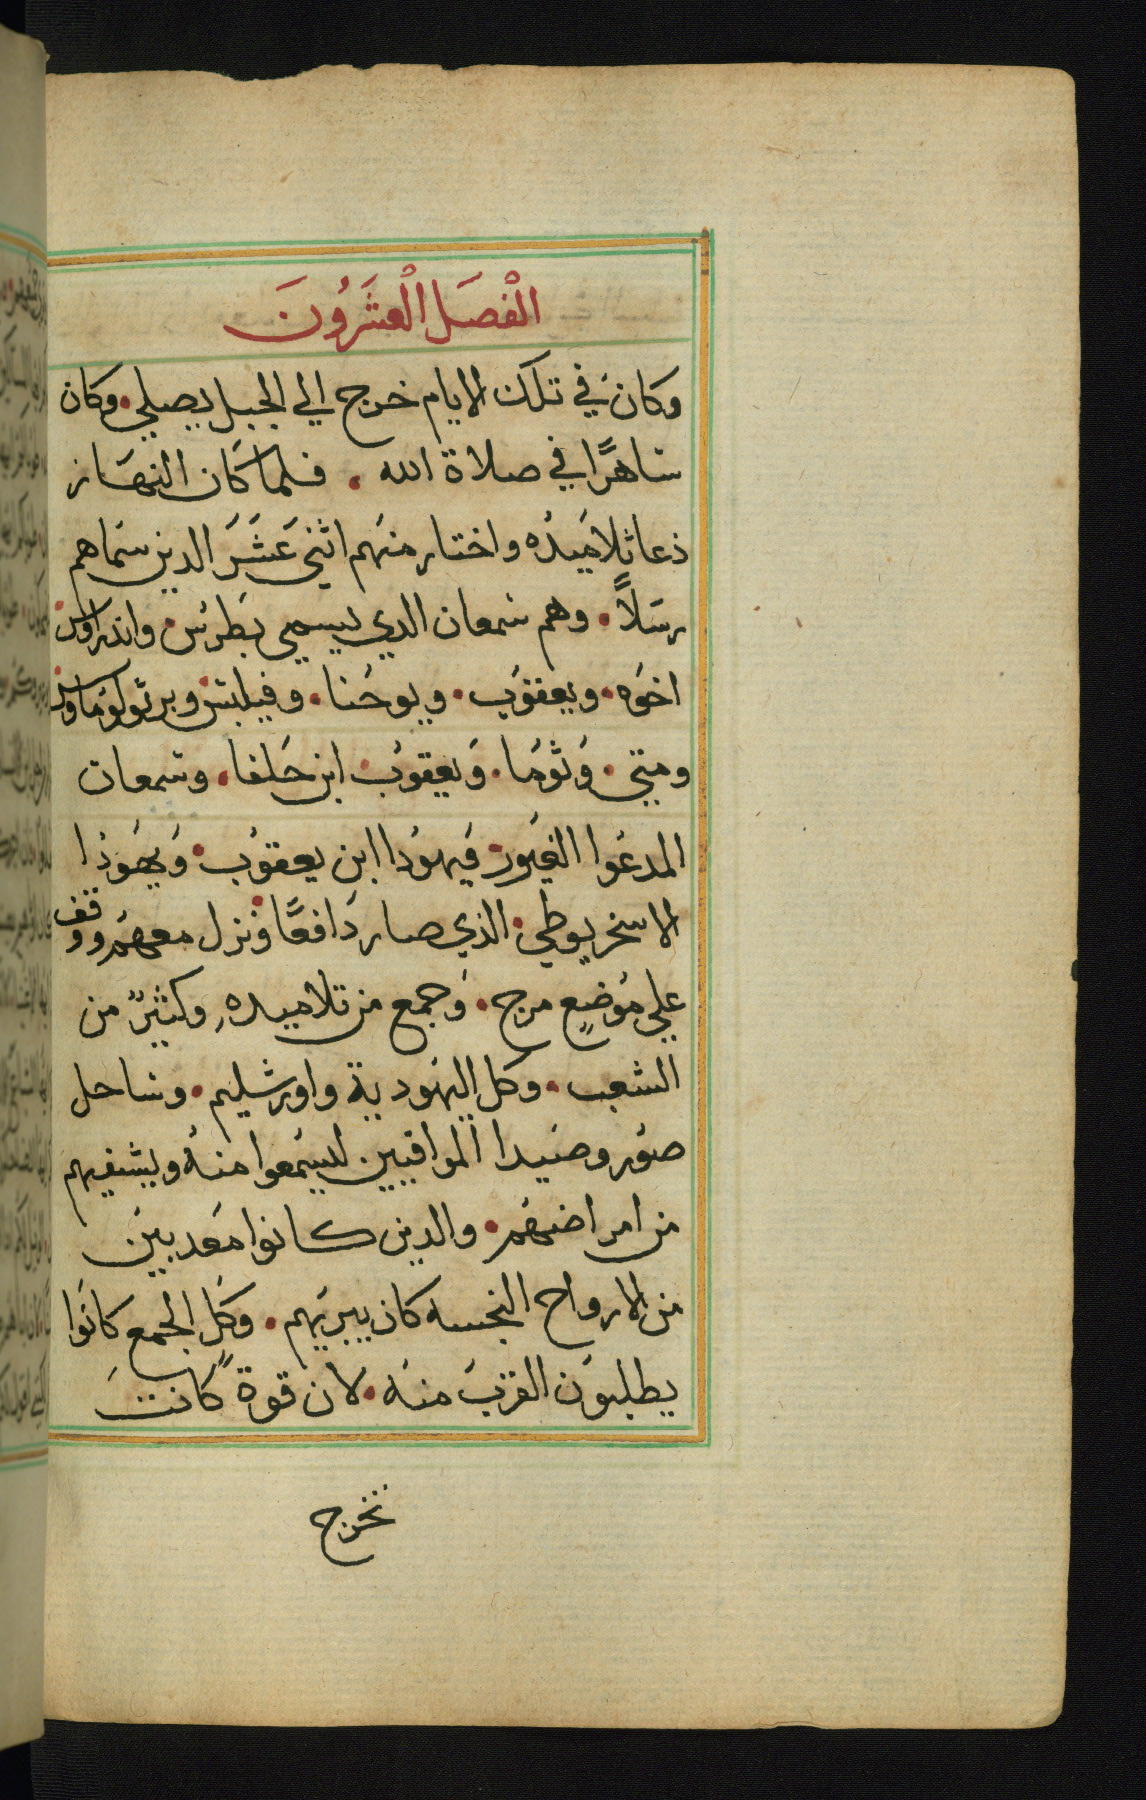 الْفصَل الْعشَرُونَ
وكانَ في تلك الايام خرج الي الجبل يصلي • وكان
ساهرًا في صلاة الله • فلما كان النهَار
دعا تلاميَده واختار منهَم اثني عَشَرَ الدين سَماهم
رسَلاً • وهم سَمعان الدي يسمي بَطرسَ • واندراوس
اخوَه • ويعقوب • ويوحَنا • وفيلبسَ وبرتولوَماوس
ومتي • وَثومَا • وَيعقوبُ ابن حَلفا • وسَمعان
المدعَوا الغيَور • فيَهوَدا ابن يعقوُب • وَيهَودا
الاسخريوطي • الذي صار دَافعًا • ونزل معهَم ووقف
علي موَضعٍ مرج • وَجمع من تلاميده وكثيرٌ من
الشعب • وكل اليهَودية واورشليم • وساحل
صوَر وصَيدا الموافيين ليسَمعوا منهُ ويشفيهم
من امراضهَم • والدين كانوا معَدبينَ
من الارواح النجسه كان يبريَهم • وكَل الجمع كانوَا
يطلبوَن القربَ منهَ • لان قوةً كانتَ
تخرج